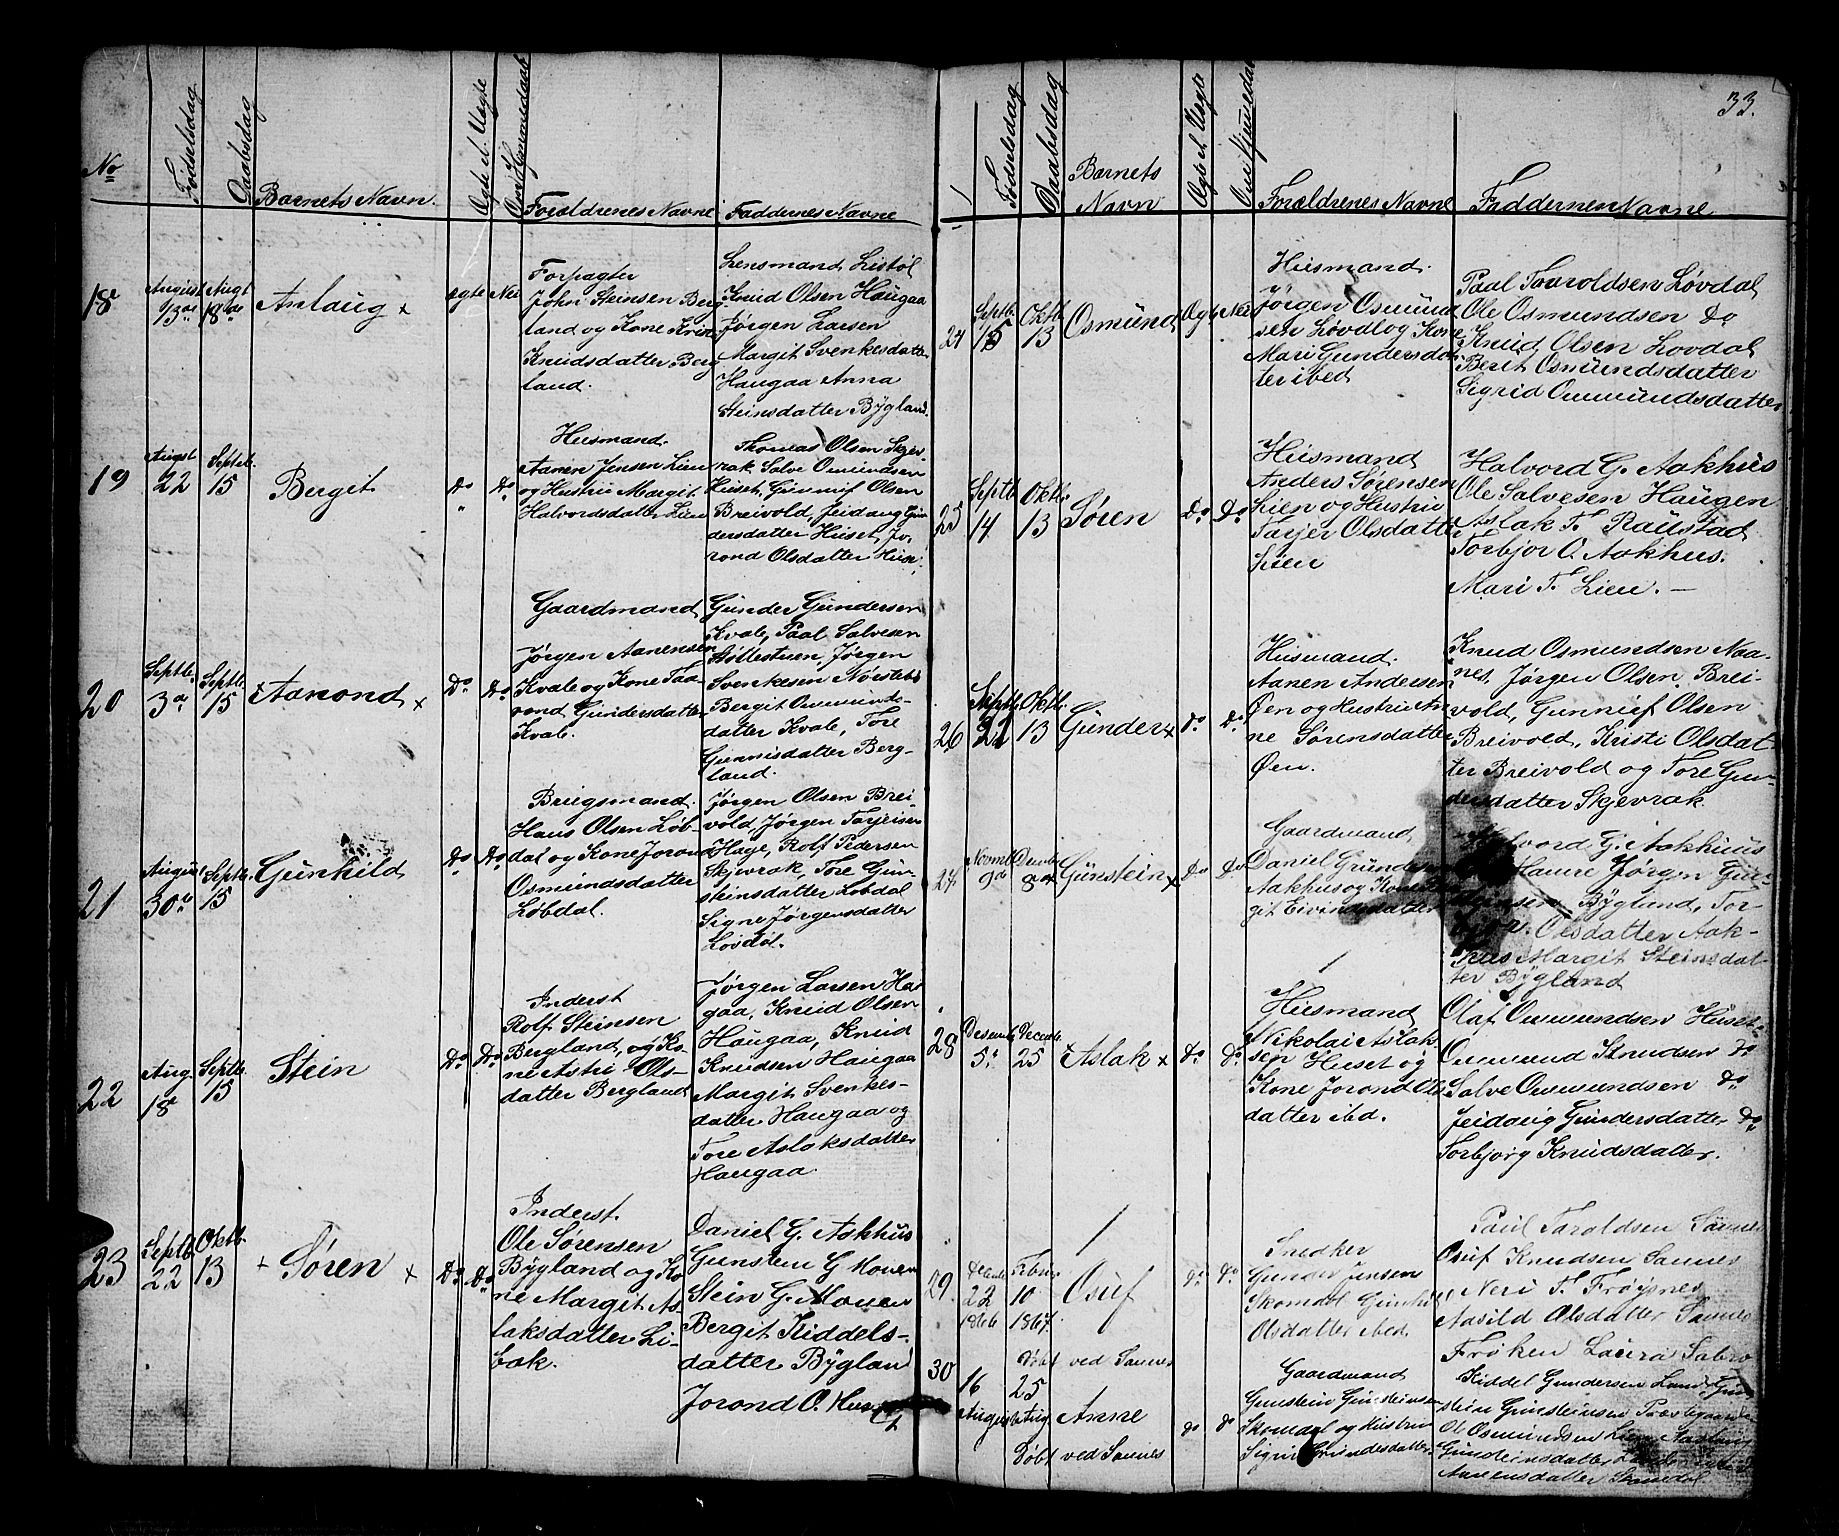 No
Fødselsdag
Daabsdag
Barnets Navn.
Ægte el. Uegte
Om Hjemmedaab
Forældrenes Navne
Faddernes Navne
18
August
Augt
Aslaug
ægte
Nei
Forpagter
John Steinsen Berg
land og Kone
Knudsdatter Berg
land.
Lensmand Listøl
Knud Olsen Haugaa
Jørgen Larsen
Margit Svenkesdatter
Haugaa Anna
Steinsdatter Bygland.
19
August
22
Septb.
15
Bergit
Do
Do
Husmand.
Aanen Jensen Lien
og Hustru Margit
Halvordsdatter Lien
Thomas Olsen Skjev
rak Salve Omundsen
Huset, Gunnuf Olsen
Breivold, Jeidaug Gun
dersdatter Huset, Jo
rond Olsdatter Huse
20
Septb.
3
Septb.
15
Aamond
Do
Do
Gaardmand
Jørgen Aanensen
Kvale og Kone Taa
rond Gundersdatter
Kvale.
Gunder Gundersen
Kvale, Paal Salvesen
Støllestuen, Jørgen
Svenkesen
Bergit Omunds-
datter Kvale, Tore
Gunnisdatter Berg-
land.
21
August
30
Septb.
15
Gunhild
Do
Do
Brugsmand.
Hans Olsen Løb-
dal og Kone Jorond
Osmundsdatter
Løbdal.
Jørgen Olsen Brei-
vold, Jørgen Tarjeisen
Hage, Rolf Pedersen
Skjevrak, Tore Gun-
steinsdatter Løbdal
Signe Jørgensdatter
Lovdøl.
22
Aug.
18
Septb.
15
Stein
Do
Do
Inderst
Rolf Steinsen
Bergland, og Ko-
ne Astri Ols-
datter Bergland
Jørgen Larsen Hau
gaa, Knud Olsen
Haugaa, Knud
Knudsen Haugaa
Margit Svenkes-
datter Haugaa og
Tore Aslaksdatter
Haugaa
23
Septb.
22
Oktb.
13
Søren
Do
Do
Inderst.
Ole Sørensen
Bygland og Ko-
ne Margit As
laksdatter Li-
bæk.
Daniel G. Aakhus
Gunsten G Mouen
Stein G. Mouen
Bergit Kiddels-
datter Bygland
Jorond O.
33.
Fødselsdag
Daabsdag
Barnets
Navn
Ægte el. Uegte
Forældrenes Navne
Faddernes Navne
24
Septb.
15
Oktb.
13
Osmund
Ægte
Nei
Husmand.
Jørgen Osmund
sen Løvdl og Kone
Mari Gundersdat
ter ibed
Paal Taroldsen Løvdal
Ole Osmundsen Do
Knud Olsen Lovdal
Berit Osmundsdatter
Sigrid Ommundsdatter
25
Septb.
14
Oktb.
13
Søren
Do
Do
Husmand
Anders Sørensen
Lien og Hustru
Tarjer Olsdatter
Lien
Halvord G. Aakhus
Ole Salvesen Haugen
Aslak T. Raustad
Torbjor O. Aakhus.
Mari T. Lien. —
26
Septb.
21
Oktb.
13
Gunder
Do
Do
Husmand.
Aanen Andersen
Øen og Hustru An
ne Sørensdatter
Øen.
Knud Osmundsen Naa-
nes, Jørgen Olsen Brei-
vold, Gunnuf Olsen
Breivold, Kristi Olsdat-
ter Breivold og Tore Gun-
dersdatter Skjevrak
27
Novmb
9
Decmb
8
Gunstein
Do
Do
Gaardmand,
Daniel Gunders
Aakhus og Kone
git Eivindsdatter
Halvord G. Aakhus
Haure Jørgen
Bygland, Tor-
Olsdatter Aak-
hus Margit Steinsdat-
ter Bygland
28
Desemb
5
Decemb.
25
Aslak
Do
Do
Husmand
Nikolai Aslak
sen Huset og
Kone Jorond Ols
datter ibd.
Olaf Ommundsen Huset
Ommund Knudsen Do
Salve Ommundsen Do
Jeidaug Gundersdatter Do
Torbjorg Knudsdatter.
29.
Decmb
22
1866
Febru
10
1867.
Osuf
Do
Do
Snedker
Gunder Jensen
Skomdal Gunhi
Olsdatter ibed
Paul Taroldsen Sannes
Osuf Knudsen Sannes
Neri T. Frøysnes
Aasild Olsdatter Sannes
Frøken Laura Sabro
Døbt ved Sannes
30
16
August
25
Aug
Anne
Do
Do
Døbt ved Sannes
Gaardmand
Gunstein Gunsteinsen
Skomdal og Hustru
Sigri Gundersdatter
Kiddel Gundersen
stein Gunsteinsen
Ol Osmundsen Lien
Gunsteinsdatter
Aanensdatter Skomdal